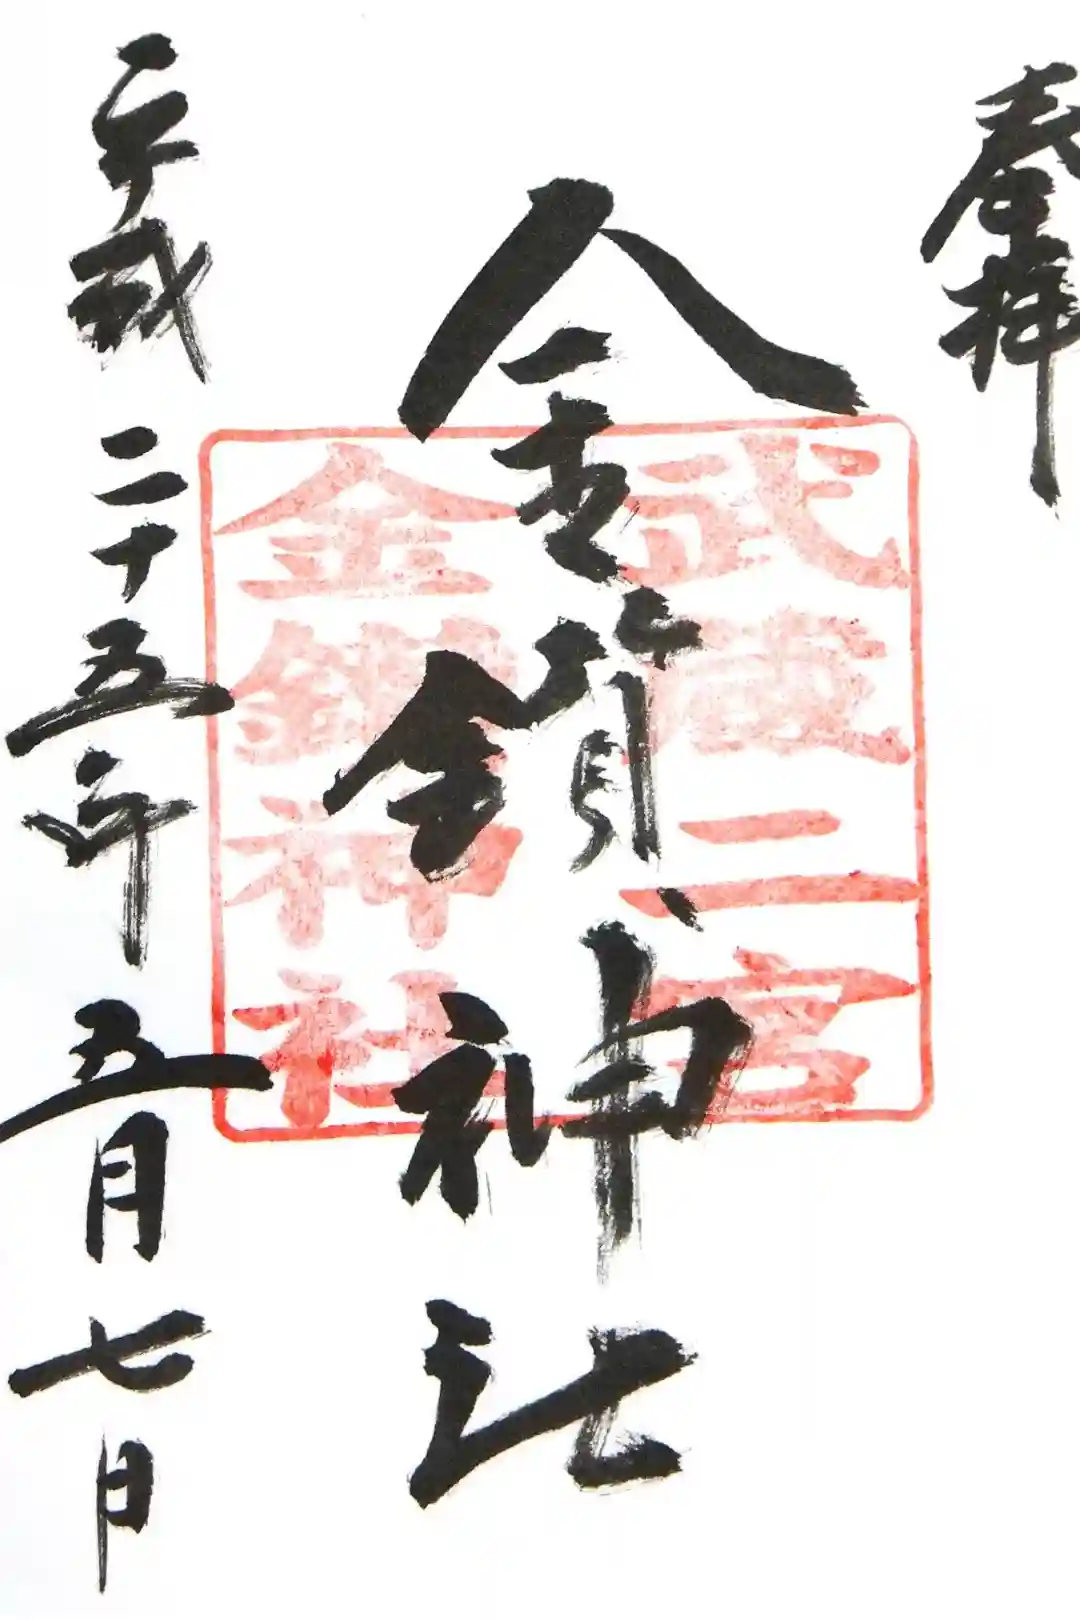 奉拝
金鑚神社
武蔵二宮
金鑚神社
平成二十五年五月七日